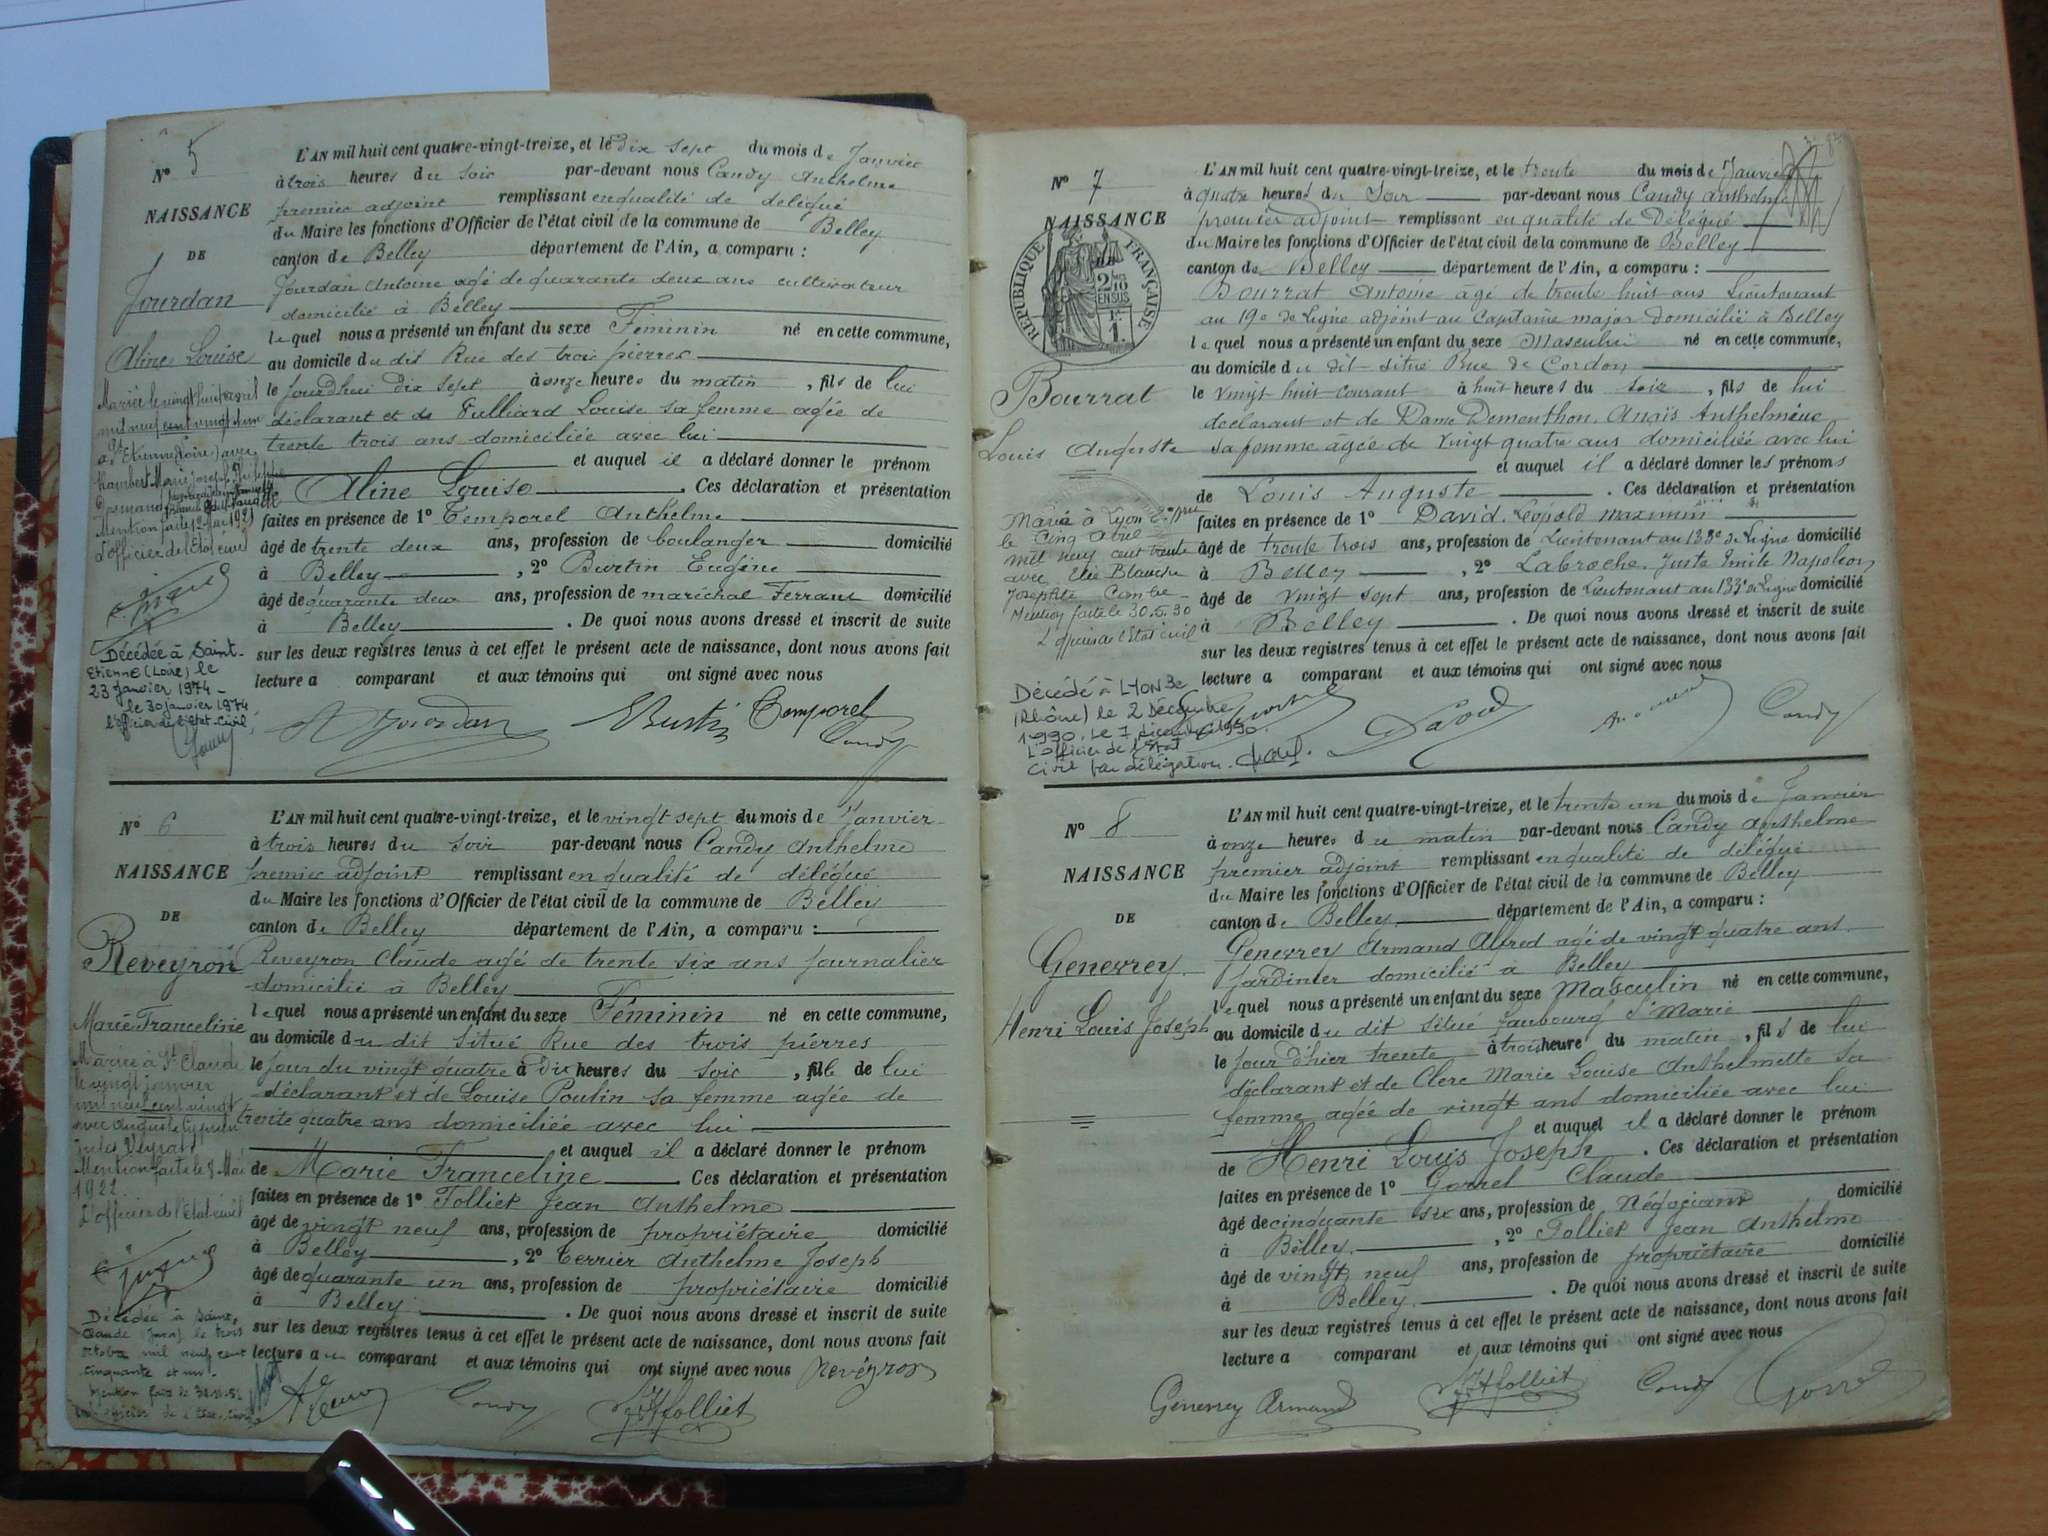 Nº 5
NAISSANCE
DE
Jourdan
Aline Louise
Mariée le vingt huit avril
mil neuf cent vingt un
à St Etienne (Loire) avec
Marie Joseph
Mention faite 12 Mai 1921
L'officier de l'Etat civil
Décédée à Saint-
Etienne (Loire) le
23 janvier 1974 -
le 30 janvier 1974
l'officier de l'Etat-Civil,
L'AN mil huit cent quatre-vingt-treize, et le dix sept du mois de Janvier
à trois heures du soir par-devant nous Candy Anthelme
premier adjoint remplissant en qualité de délégué
du Maire les fonctions d'Officier de l'état civil de la commune de Belley
canton de Belley département de l'Ain, a comparu :
Jourdan Antoine agé de quarante deux ans cultivateur
domicilié à Belley
lequel nous a présenté un enfant du sexe Féminin né en cette commune,
au domicile du dit Rue des trois pierres
le jourdhui dix sept à onze heures du matin, fils de lui
déclarant et de Vulliard Louise sa femme agée de
trente trois ans domiciliée avec lui
et auquel il a déclaré donner le prénom
de Aline Louise. Ces déclaration et présentation
faites en présence de 1º Temporel Anthelme
âgé de trente deux ans, profession de boulanger domicilié
à Belley, 2º Burtin Eugène
âgé de quarante deux ans, profession de maréchal Ferrant domicilié
à Belley. De quoi nous avons dressé et inscrit de suite
sur les deux registres tenus à cet effet le présent acte de naissance, dont nous avons fait
lecture a comparant et aux témoins qui ont signé avec nous
Jourdan EBurtin Temporel
Candy
Nº 6
NAISSANCE
DE
Reveyron
Marie Franceline
Mariée à St Claude
le vingt janvier
mil neuf cent vingt
avec Auguste Cyprien
Jules Veyrat
Mention faite le 8 Mai
1922.
L'officier de l'Etat-civil
Décédée à Saint-
Claude (Jura) le trois
octobre mil neuf cent
cinquante et un.
L'AN mil huit cent quatre-vingt-treize, et le vingt sept du mois de Janvier
à trois heures du soir par-devant nous Candy Anthelme
premier adjoint remplissant en qualité de délégué
du Maire les fonctions d'Officier de l'état civil de la commune de Belley
canton de Belley département de l'Ain, a comparu :
Reveyron Claude agé de trente six ans journalier
domicilié à Belley
lequel nous a présenté un enfant du sexe Féminin né en cette commune,
au domicile du dit situé Rue des trois pierres
le jour du vingt quatre à dix heures du soir, fille de lui
déclarant et de Louise Poulin sa femme agée de
trente quatre ans domiciliée avec lui
et auquel il a déclaré donner le prénom
de Marie Franceline. Ces déclaration et présentation
faites en présence de 1º Folliet Jean Anthelme
âgé de vingt neuf ans, profession de propriétaire domicilié
à Belley, 2º Terrier Anthelme Joseph
âgé de quarante un ans, profession de propriétaire domicilié
à Belley. De quoi nous avons dressé et inscrit de suite
sur les deux registres tenus à cet effet le présent acte de naissance, dont nous avons fait
lecture au comparant et aux témoins qui ont signé avec nous Reveyron
Candy JHfolliet
Nº 7
NAISSANCE
REPUBLIQUE FRANÇAISE
2/10
EN SUS
1 F.
Bourrat
Louis Auguste
Marié à Lyon
le cinq avril
mil neuf cent trente
avec Elie Blanche
Josephte Combe
Mention faite le 30.5.30
L'officier de l'Etat civil
Décédé à LYON 3e
(Rhône) le 2 Décembre
1990. Le 7 décembre 1990.
L'officier de l'Etat
Civil par délégation.
L'AN mil huit cent quatre-vingt-treize, et le trente du mois de Janvier
à quatre heures du Soir par-devant nous Candy anthelme
premier adjoint remplissant en qualité de Délégué
du Maire les fonctions d'Officier de l'état civil de la commune de Belley
canton de Belley département de l'Ain, a comparu :
Bourrat Antoine âgé de trente huit ans Lieutenant
au 19e de Ligne adjoint au Capitaine major domicilié à Belley
lequel nous a présenté un enfant du sexe Masculin né en cette commune,
au domicile du dit situé Rue de Cordon
le vingt huit courant à huit heures du soir, fils de lui
declarant et de Dame Dementhon Anaïs Anthelmine
sa femme âgée de vingt quatre ans domiciliée avec lui
et auquel il a déclaré donner les prénoms
de Louis Auguste. Ces déclaration et présentation
faites en présence de 1º David Léopold Maximin
âgé de trente trois ans, profession de Lieutenant au 133e de Ligne domicilié
à Belley, 2º Labroche Juste Emile Napoléon
âgé de vingt sept ans, profession de Lieutenant au 133e de Ligne domicilié
à Belley. De quoi nous avons dressé et inscrit de suite
sur les deux registres tenus à cet effet le présent acte de naissance, dont nous avons fait
lecture a comparant et aux témoins qui ont signé avec nous
David Candy
Nº 8
NAISSANCE
DE
Genevrey
Henri Louis Joseph
L'AN mil huit cent quatre-vingt-treize, et le trente un du mois de Janvier
à onze heures du matin par-devant nous Candy Anthelme
premier adjoint remplissant en qualité de délégué
du Maire les fonctions d'Officier de l'état civil de la commune de Belley
canton de Belley département de l'Ain, a comparu :
Genevrey Armand Alfred agé de vingt quatre ans
jardinier domicilié à Belley
lequel nous a présenté un enfant du sexe Masculin né en cette commune,
au domicile du dit situé faubourg St Marie
le jour d'hier trente à trois heure du matin, fils de lui
déclarant et de Clerc Marie Louise Anthelmette sa
femme agée de vingt ans domiciliée avec lui
et auquel il a déclaré donner le prénom
de Henri Louis Joseph. Ces déclaration et présentation
faites en présence de 1º Gorrel Claude
âgé de cinquante six ans, profession de Négociant domicilié
à Belley, 2º Folliet Jean Anthelme
âgé de vingt neuf ans, profession de propriétaire domicilié
à Belley. De quoi nous avons dressé et inscrit de suite
sur les deux registres tenus à cet effet le présent acte de naissance, dont nous avons fait
lecture a comparant et aux témoins qui ont signé avec nous
Genevrey Armand JHfolliet Candy Gorrel